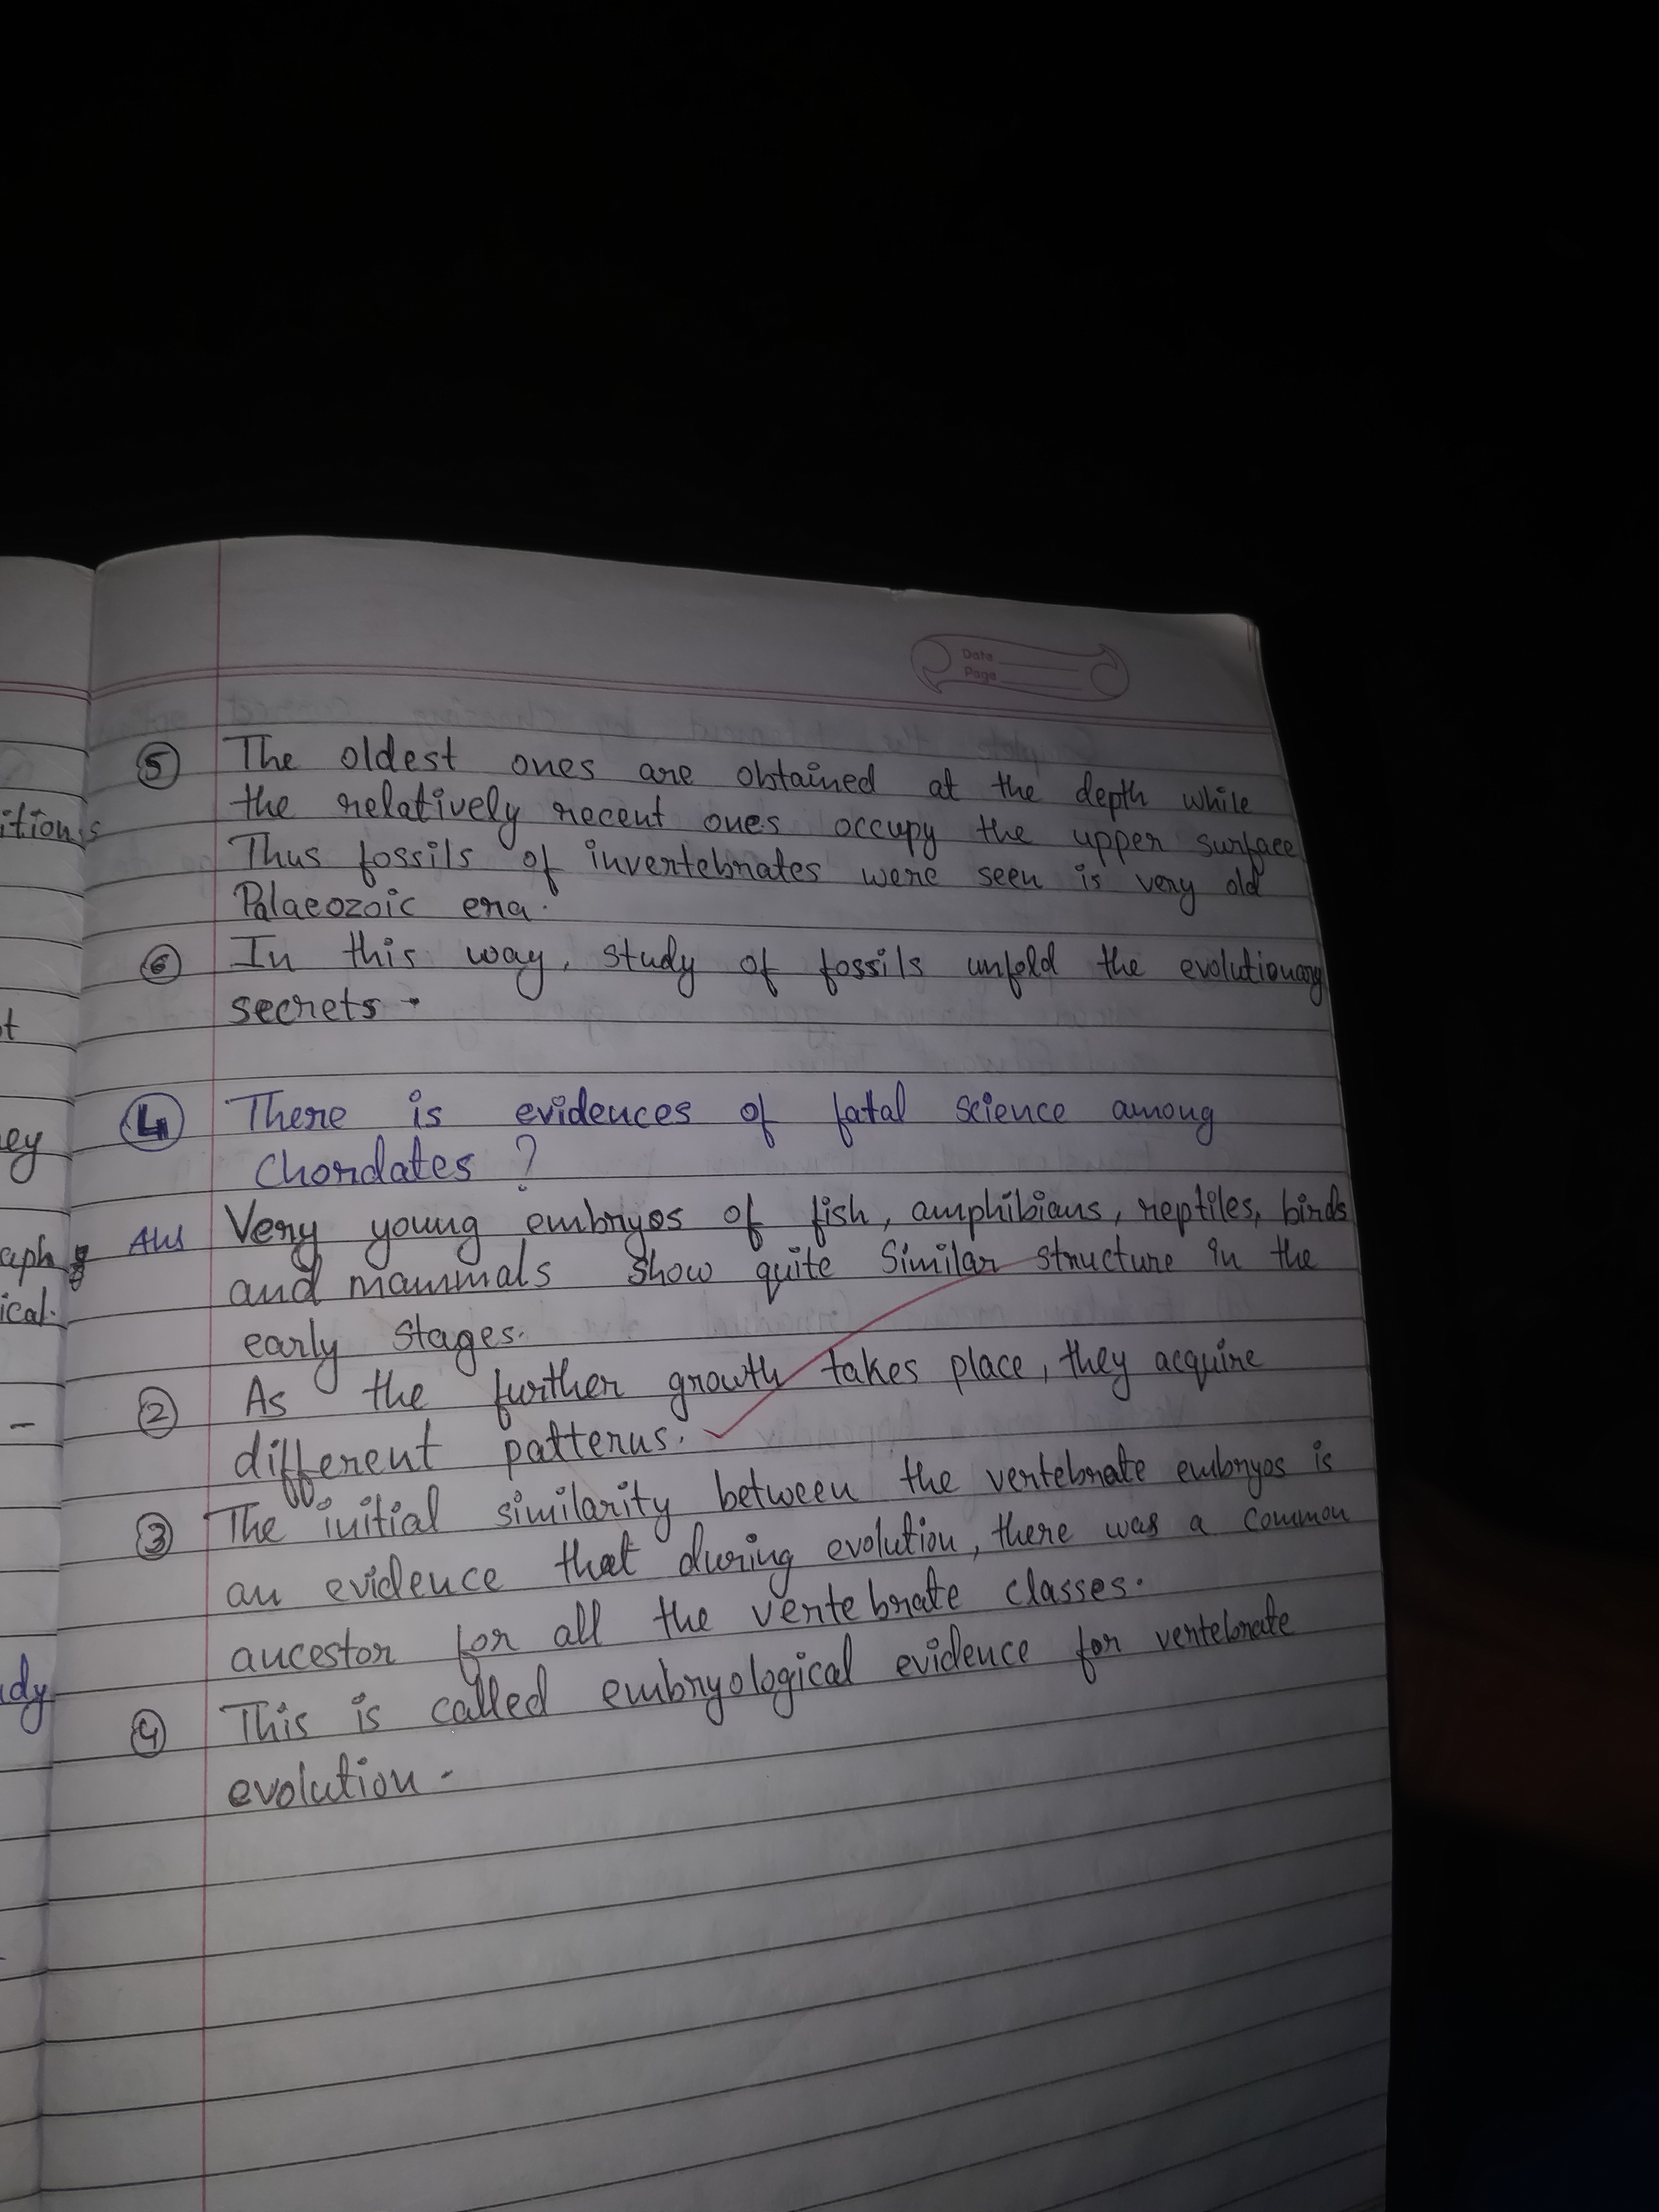 Date
Page
⑤ The oldest ones are obtained at the depth while
the relatively recent ones occupy the upper surface
Thus fossils of invertebrates were seen is very old
Palaeozoic era.
⑥ In this way, study of fossils unfold the evolutionary
secrets.
④ There is evidences of fatal science among
Chordates ?
Ans Very young embryos of fish, amphibians, reptiles, birds
and mammals show quite Similar structure in the
early stages.
② As the further growth takes place, they acquire
different patterns.
③ The initial similarity between the vertebrate embryos is
an evidence that during evolution, there was a common
ancestor for all the vertebrate classes.
④ This is called embryological evidence for vertebrate
evolution -
itions
ey
aph
ical.
dy